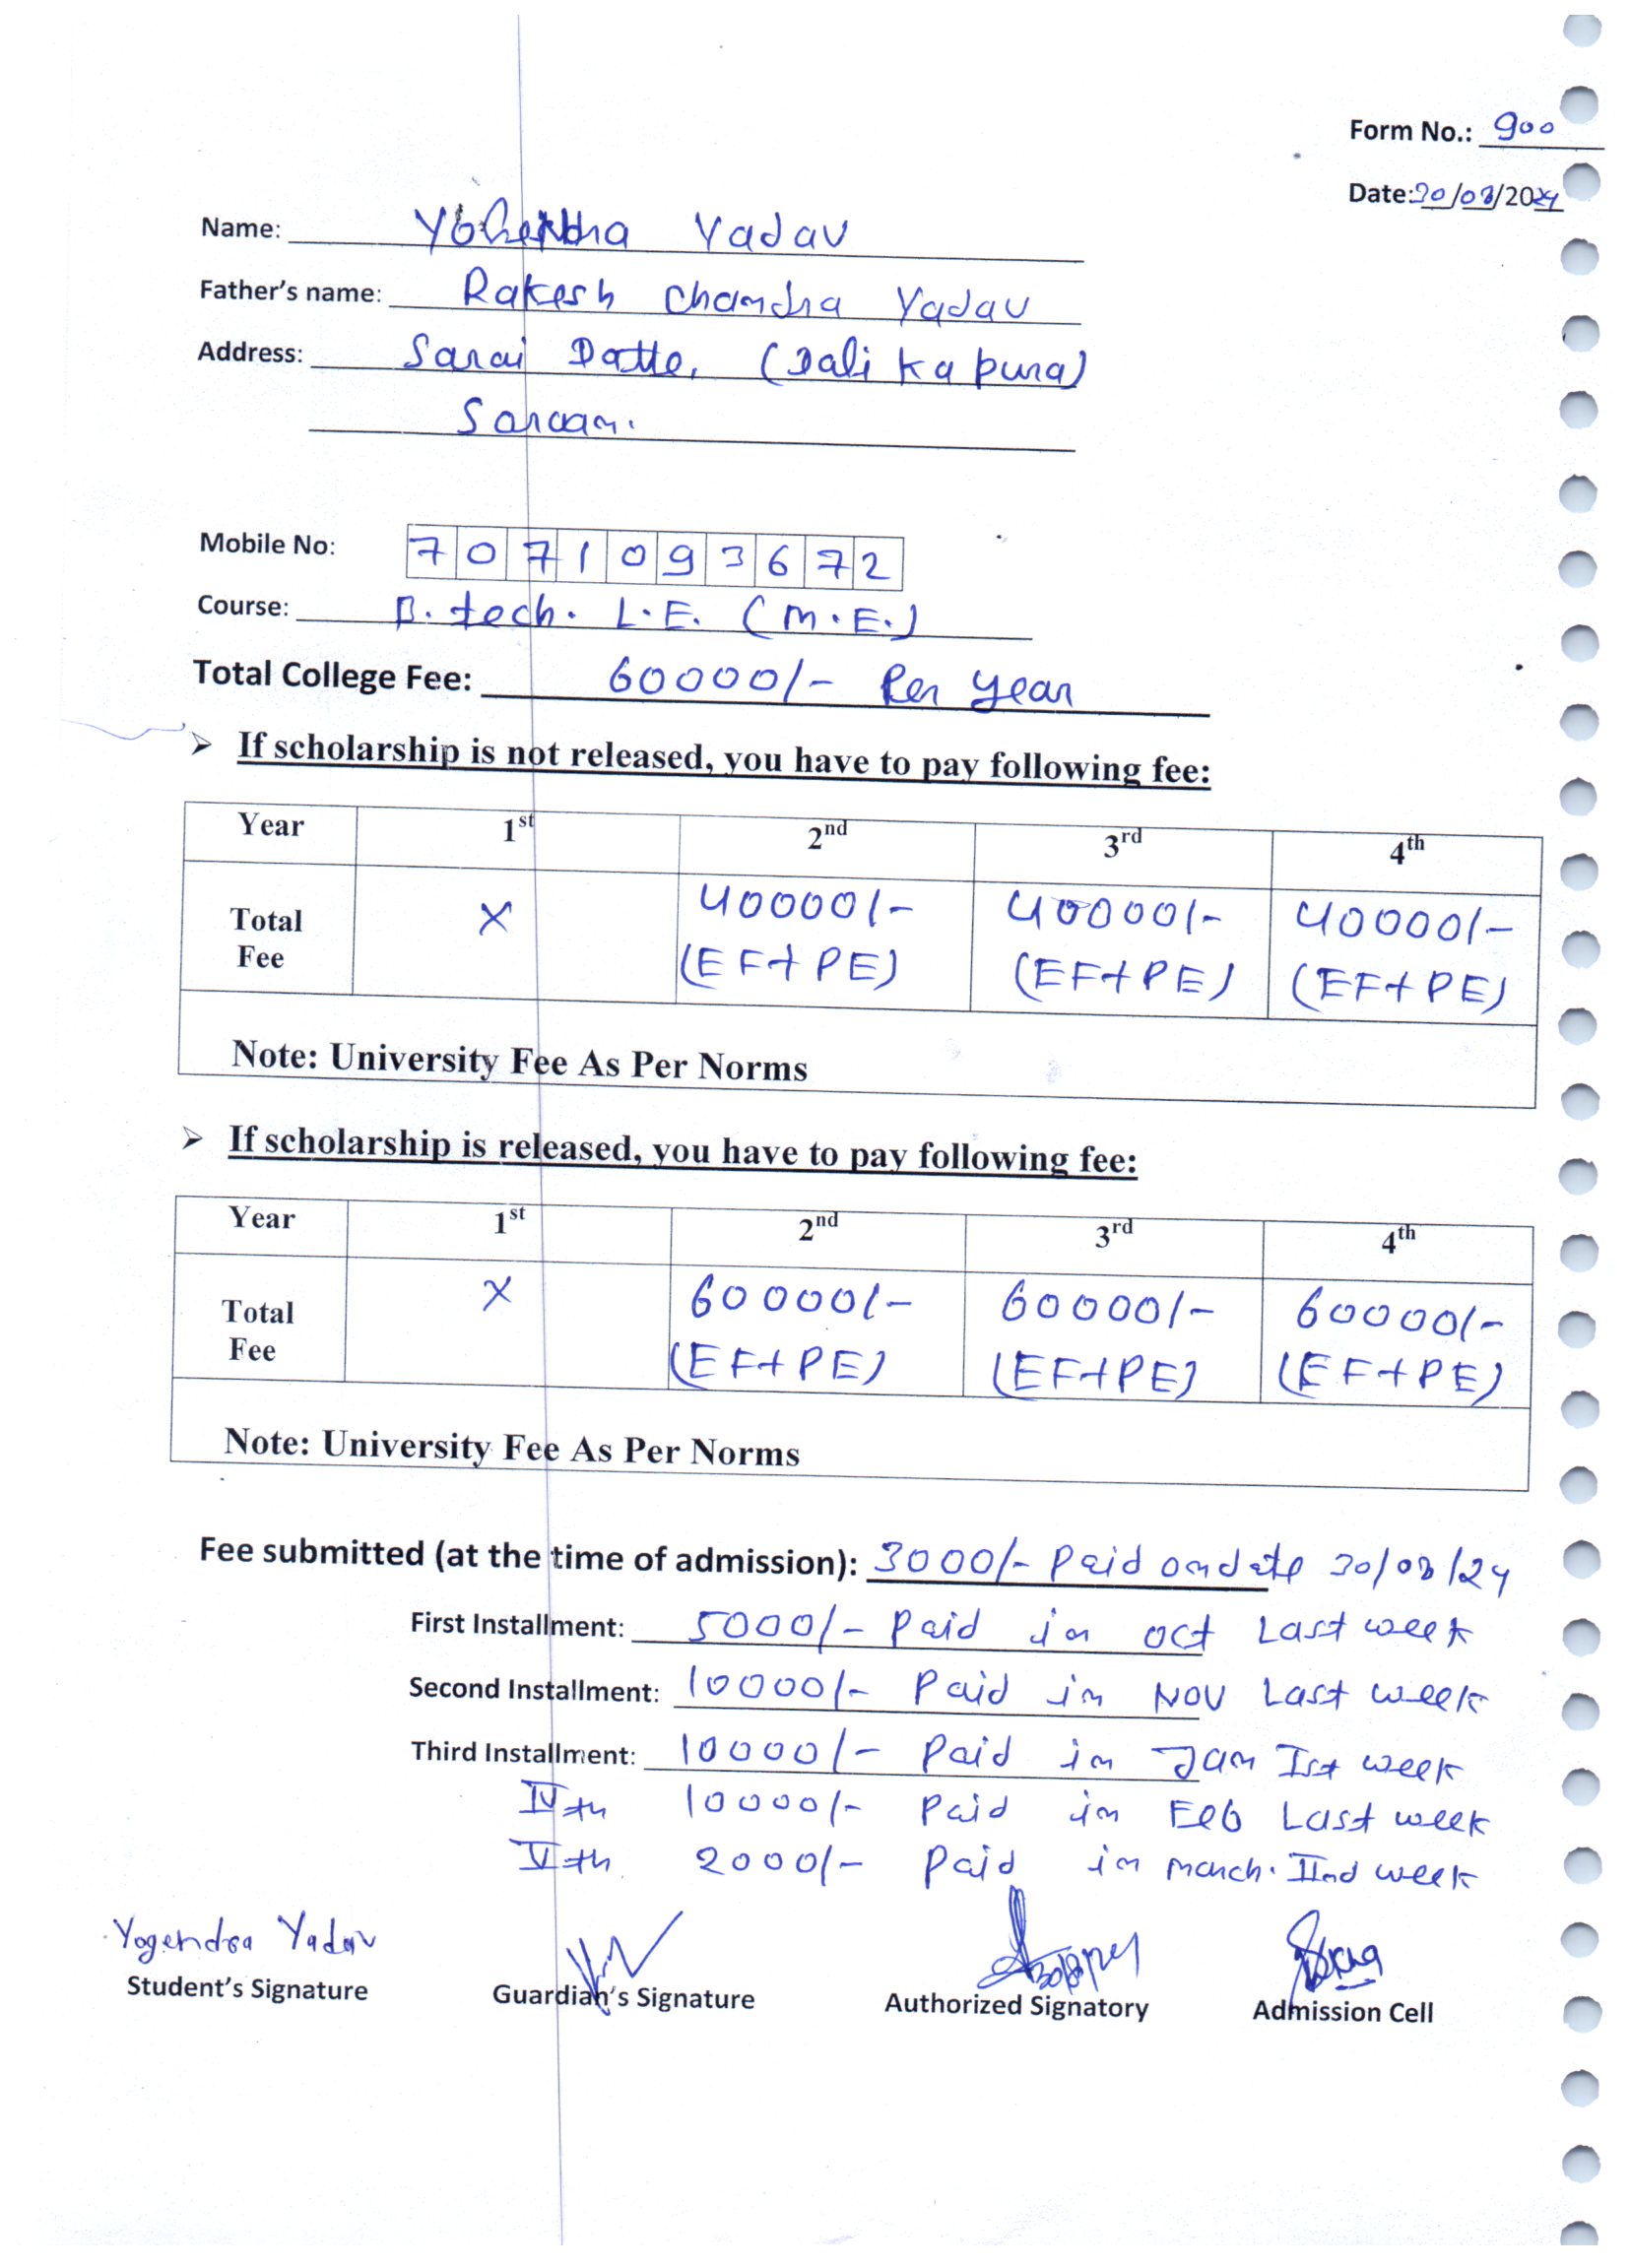 Form No.: 900
Date: 30/08/2024
Name: Yadav
Father's name: Rakesh Chandra Yadav
Address: Sarai Datte, (Dali ka pura)
Mobile No: 7071093672
Course: B. tech. L.E. (M.E.)
Total College Fee: 60000/- Per year
➢ If scholarship is not released, you have to pay following fee:
Year 1st 2nd 3rd 4th
Total Fee X 40000/- (EF+PE) 40000/- (EF+PE) 40000/- (EF+PE)
Note: University Fee As Per Norms
➢ If scholarship is released, you have to pay following fee:
Year 1st 2nd 3rd 4th
Total Fee X 60000/- (EF+PE) 60000/- (EF+PE) 60000/- (EF+PE)
Note: University Fee As Per Norms
Fee submitted (at the time of admission): 3000/- Paid on date 30/08/24
First Installment: 5000/- Paid in Oct Last week
Second Installment: 10000/- Paid in NOV Last week
Third Installment: 10000/- Paid in Jan Ist week
IVth 10000/- Paid in Feb Last week
Vth 2000/- Paid in march. IInd week
Yogendra Yadav
Student's Signature Guardian's Signature Authorized Signatory Admission Cell